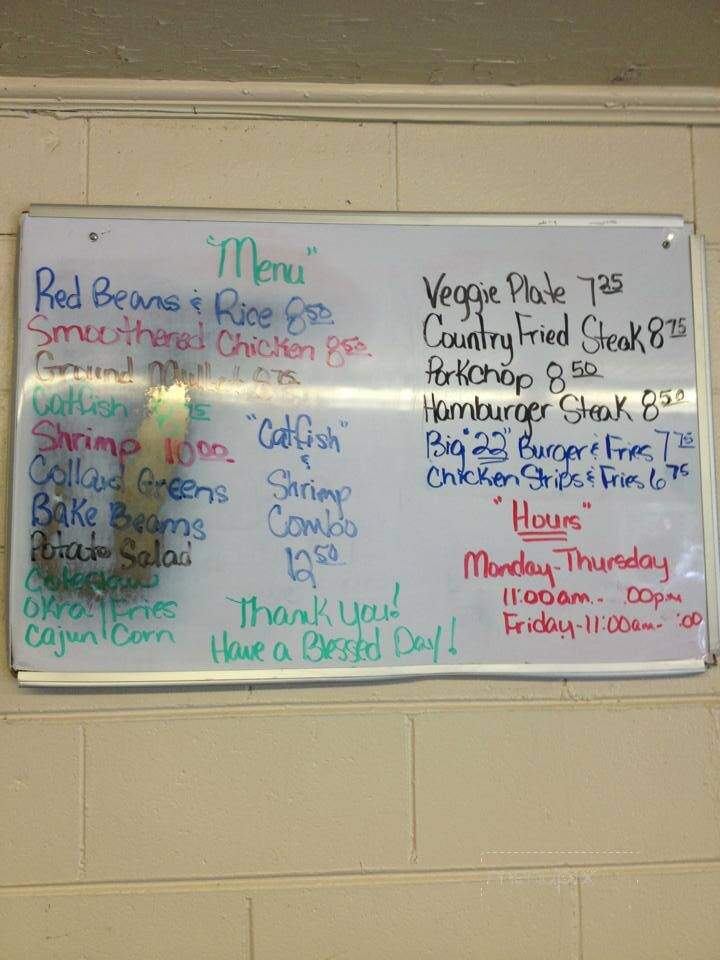 "Menu"
Red Beans & Rice 8 50
Smoothered Chicken 8 50
Ground Mullet 8 75
Catfish 75
Shrimp 10 00
Collaud Greens
Bake Beams
Potato Salad
Coleslaw
Okra / Fries
Cajun Corn
"Catfish"
&
Shrimp
Combo
12 50
Thank you!
Have a Blessed Day!
Veggie Plate 7 25
Country Fried Steak 8 75
Porkchop 8 50
Hamburger Steak 8 50
Big "22" Burger & Fries 7 75
Chicken Strips & Fries 6 75
"Hours"
Monday-Thursday
11:00am.- :00p.m
Friday-11:00am- :00